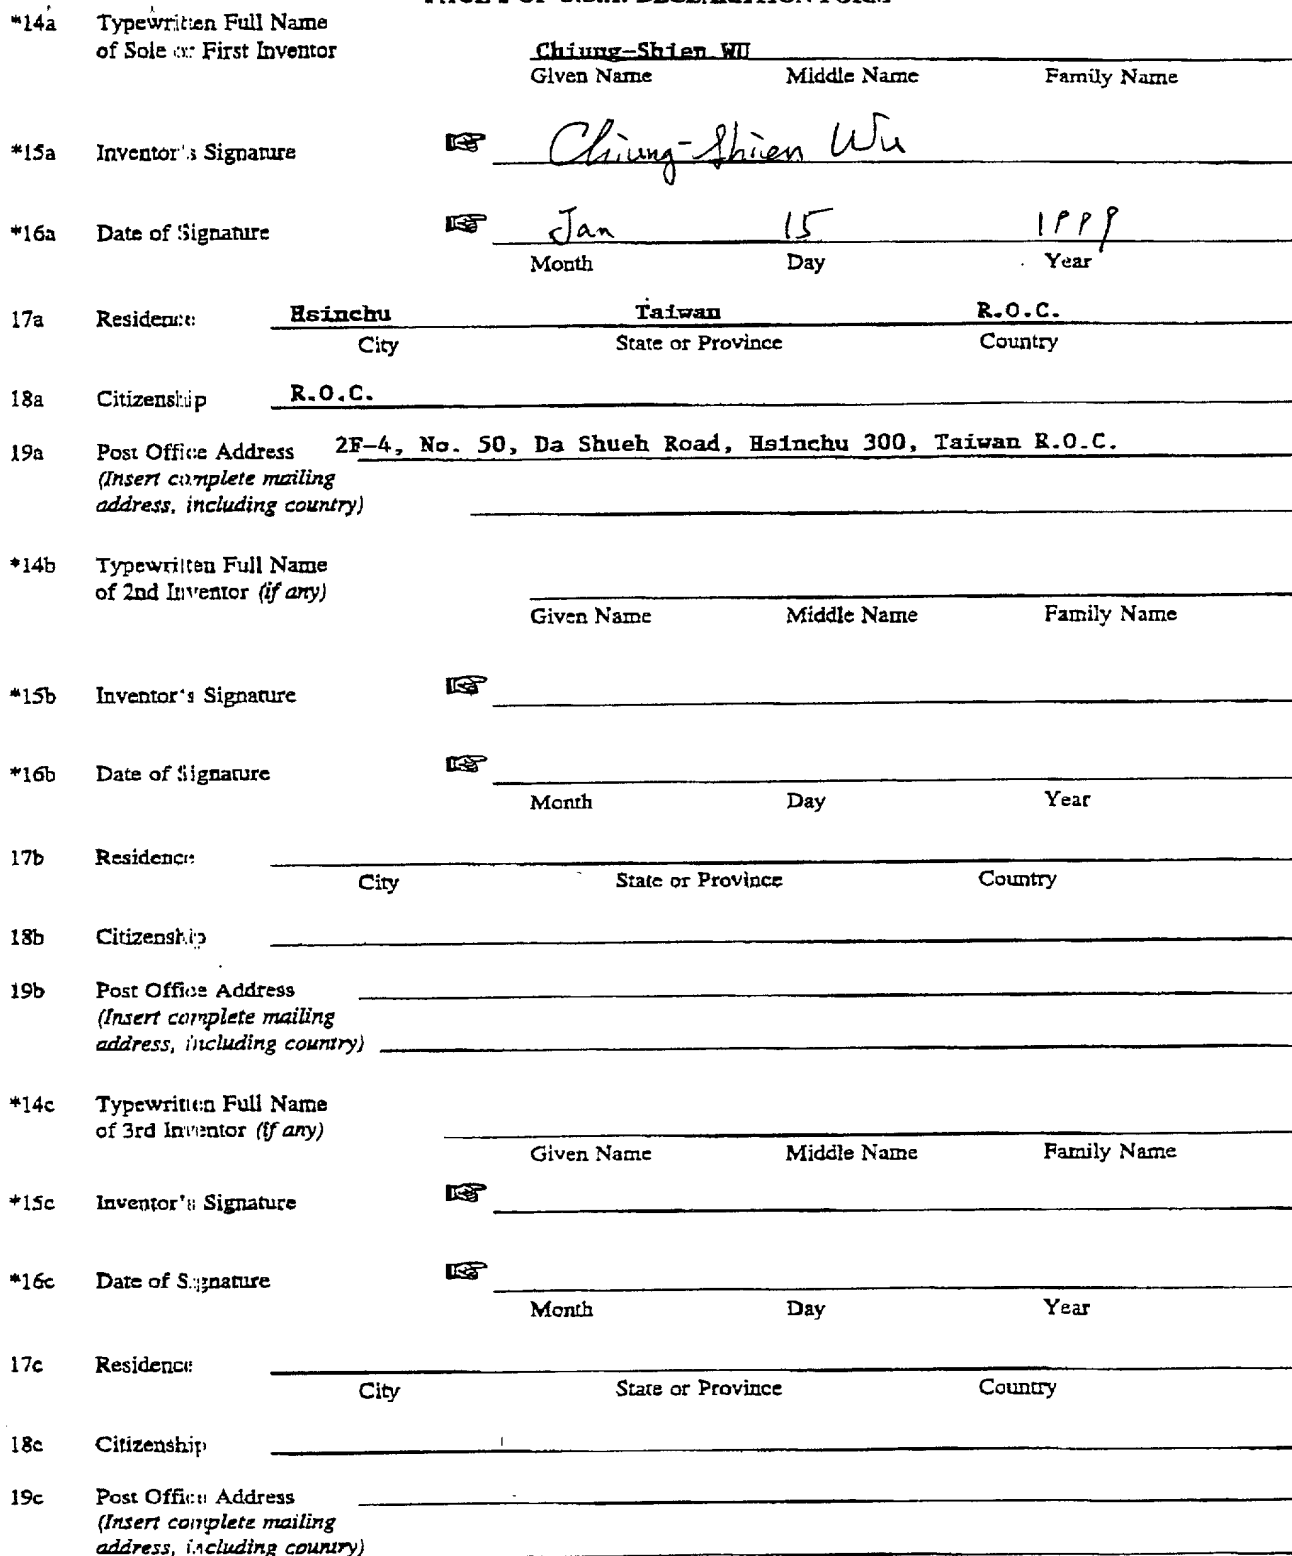 *14a Typewritten Full Name
of Sole or First Inventor Chiung-Shien WU
Given Name Middle Name Family Name
*15a Inventor's Signature Chiung-Shien Wu
*16a Date of Signature Jan 15 1999
Month Day Year
17a Residence Hsinchu Taiwan R.O.C.
City State or Province Country
18a Citizenship R.O.C.
19a Post Office Address 2F-4, No. 50, Da Shueh Road, Hsinchu 300, Taiwan R.O.C.
(Insert complete mailing
address, including country)
*14b Typewritten Full Name
of 2nd Inventor (if any)
Given Name Middle Name Family Name
*15b Inventor's Signature
*16b Date of Signature
Month Day Year
17b Residence
City State or Province Country
18b Citizenship
19b Post Office Address
(Insert complete mailing
address, including country)
*14c Typewritten Full Name
of 3rd Inventor (if any)
Given Name Middle Name Family Name
*15c Inventor's Signature
*16c Date of Signature
Month Day Year
17c Residence
City State or Province Country
18c Citizenship
19c Post Office Address
(Insert complete mailing
address, including country)